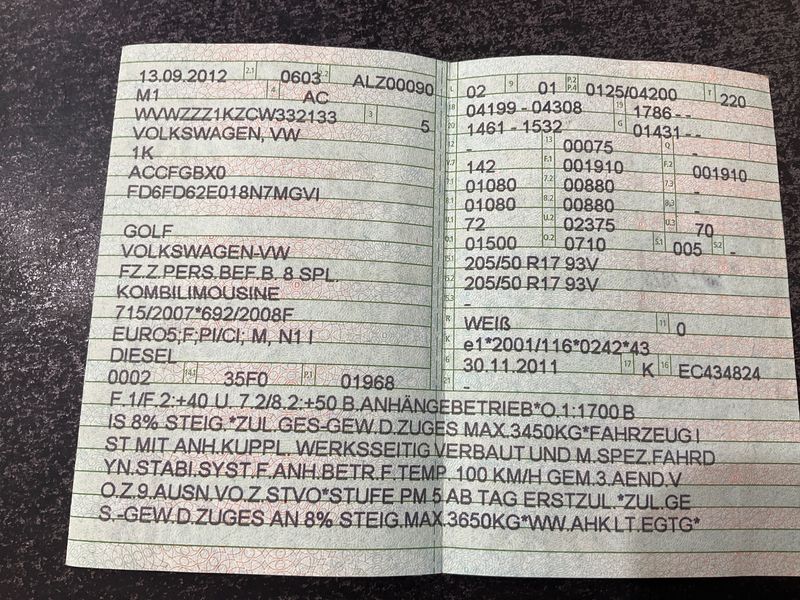 13.09.2012 2.1 0603 2.2 ALZ00090
M1 4 AC
WVWZZZ1KZCW332133 3 5
VOLKSWAGEN, VW
1K
ACCFGBX0
FD6FD62E018N7MGVI
GOLF
VOLKSWAGEN-VW
FZ.Z.PERS.BEF.B. 8 SPL.
KOMBILIMOUSINE
715/2007*692/2008F
EURO5;F;PI/CI; M, N1 I
DIESEL
0002 14.1 35F0 P.1 01968
L 02 9 01 P.2 P.4 0125/04200 T 220
18 04199 - 04308 19 1786 - -
20 1461 - 1532 G 01431 - -
12 - 13 00075 Q -
V.7 142 F.1 001910 F.2 001910
7.1 01080 7.2 00880 7.3 -
8.1 01080 8.2 00880 8.3 -
U.1 72 U.2 02375 U.3 70
O.1 01500 O.2 0710 S.1 005 S.2 -
15.1 205/50 R17 93V
15.2 205/50 R17 93V
15.3 -
R WEIß 11 0
K e1*2001/116*0242*43
6 30.11.2011 17 K 16 EC434824
21 -
F.1/F.2:+40 U. 7.2/8.2:+50 B.ANHÄNGEBETRIEB*O.1:1700 B
IS 8% STEIG.*ZUL.GES-GEW.D.ZUGES MAX.3450KG*FAHRZEUG I
ST MIT ANH.KUPPL. WERKSSEITIG VERBAUT UND M.SPEZ.FAHRD
YN.STABI.SYST.F.ANH.BETR.F.TEMP. 100 KM/H GEM.3.AEND.V
O.Z.9.AUSN.VO.Z.STVO*STUFE PM 5 AB TAG ERSTZUL.*ZUL.GE
S.-GEW.D.ZUGES AN 8% STEIG.MAX.3650KG*WW.AHK LT.EGTG*